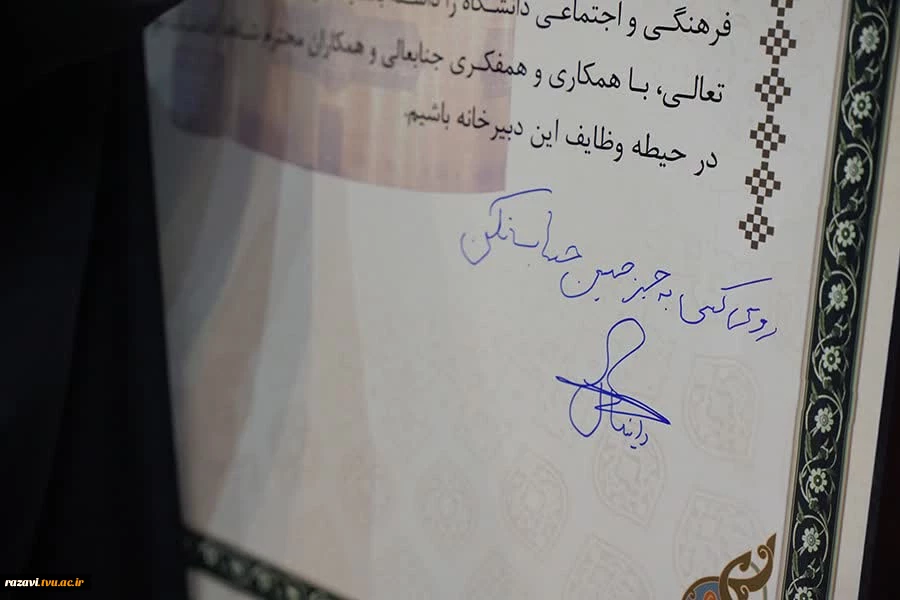 فرهنگـی و اجتماعـی دانشـگاه را داشـته
تعالـی، بـا همکاری و همفکـری جنابعالی و همکاران محترم
در حیطه وظایف این دبیرخانه باشیم.
روی کسی به جز حسین حساب نکن
razavi.tvu.ac.ir